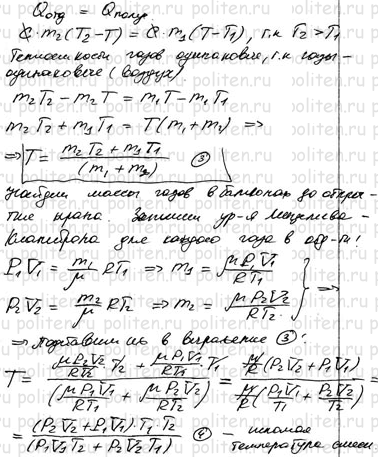 Qотд = Qполуч.
c·m₂(T₂-T) = c·m₁(T-T₁), т.к T₂>T₁
Теплоемкости газов одинаковые, т.к газы-
одинаковые (воздух).
m₂T₂-m₂T = m₁T-m₁T₁
m₂T₂+m₁T₁ = T(m₁+m₂) =>
=> T = (m₂T₂+m₁T₁)/(m₁+m₂) ③
Найдем массы газов в баллонах до откры-
тие крана. Запишем ур-я Менделеева-
Клапейрона для каждого газа в
P₁V₁ = m₁/μ RT₁ => m₁ = μP₁V₁/RT₁
P₂V₂ = m₂/μ RT₂ => m₂ = μP₂V₂/RT₂ } =>
=> подставим их в выражение ③:
T = (μP₂V₂/RT₂ ·T₂ + μP₁V₁/RT₁ ·T₁)/(μP₁V₁/RT₁ + μP₂V₂/RT₂) = μ/R(P₂V₂+P₁V₁)/μ/R(P₁V₁/T₁ + P₂V₂/T₂) =
= (P₂V₂+P₁V₁)·T₁·T₂/(P₁V₁T₂+P₂V₂T₁) ④ - искомая
температура смеси
politen.ru